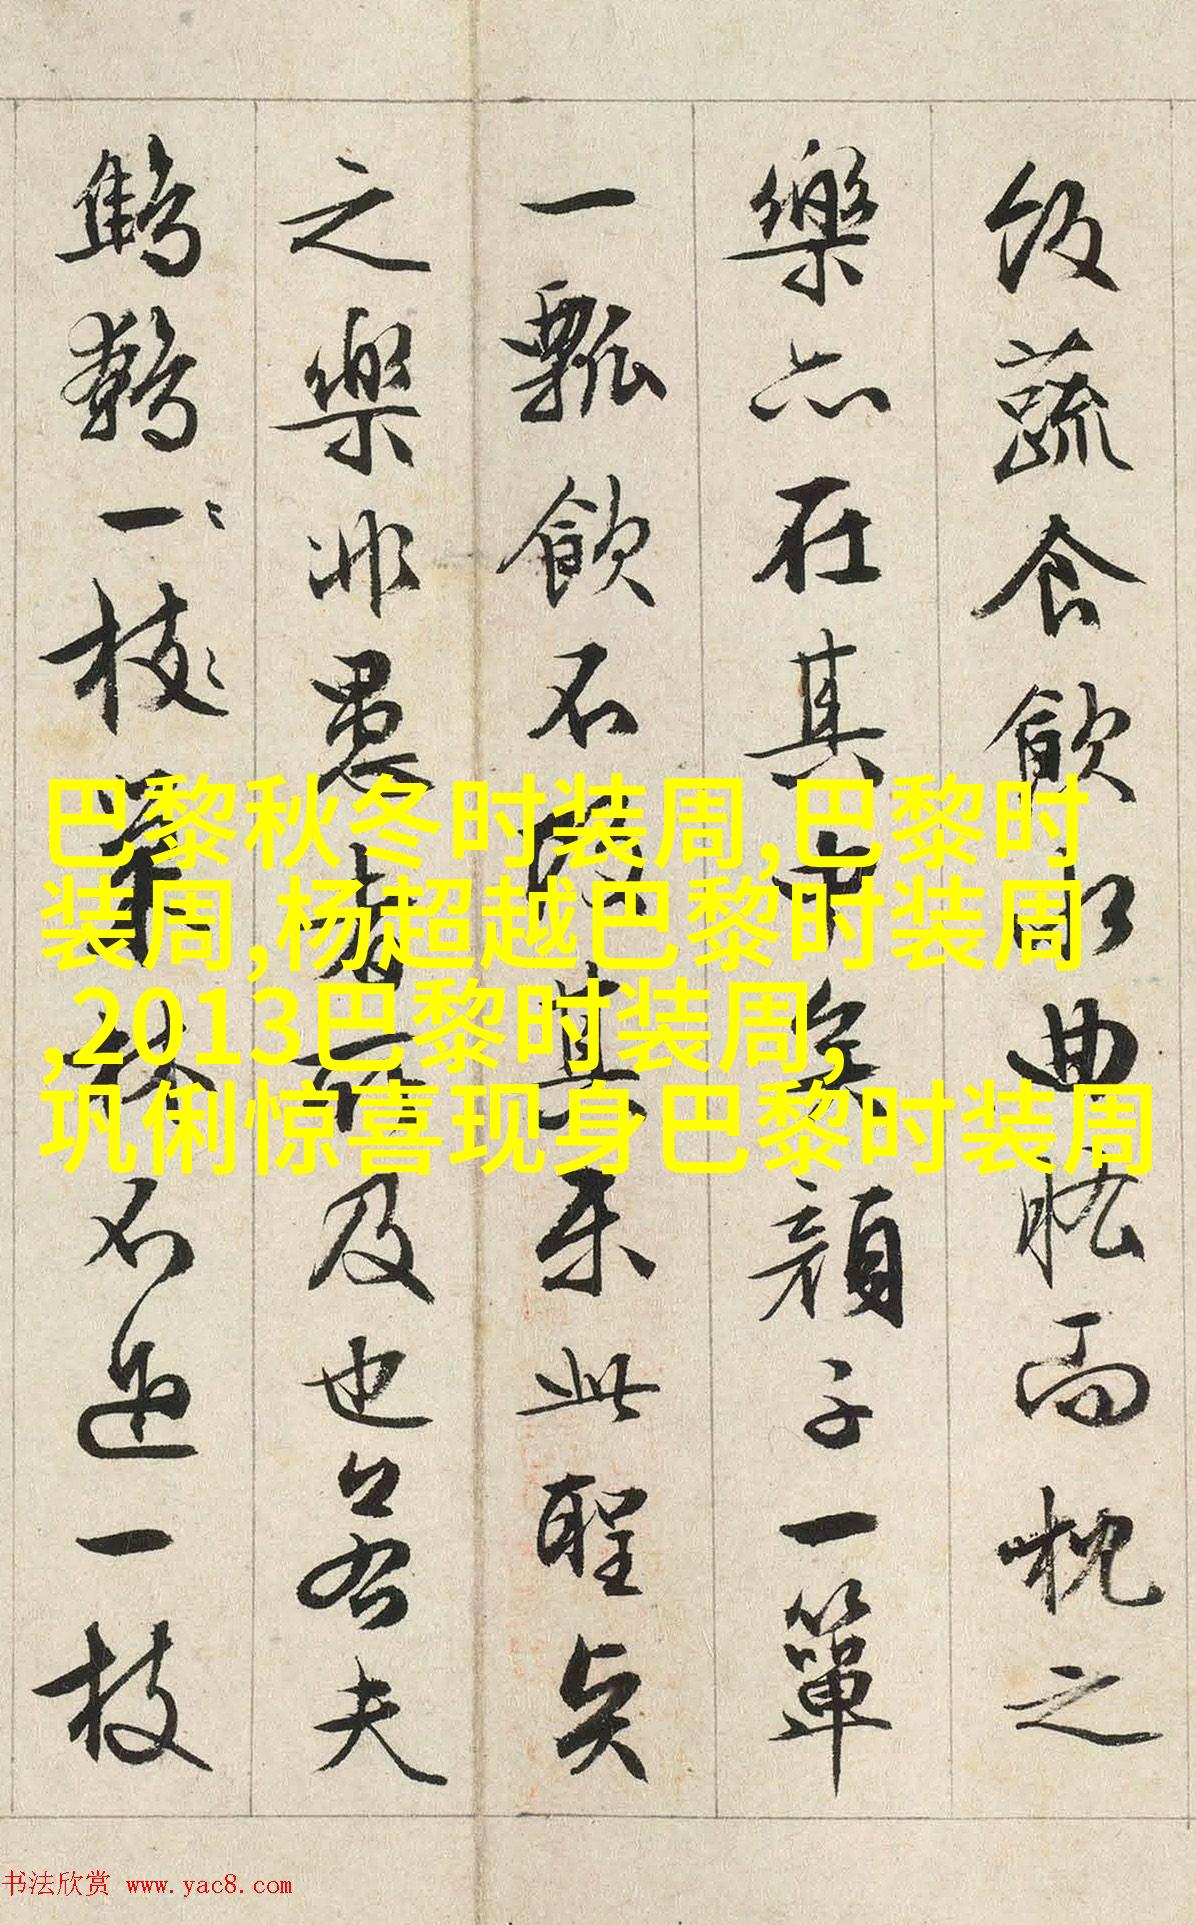 飯蔬食飲水曲肱而枕之
樂亦在其中矣顏子一簞
一瓢飲不改其樂此聖賢
之樂非愚者所及也若夫
鷦鷯一枝巢林不過一枝
巴黎秋冬时装周,巴黎时
装周,杨超越巴黎时装周
,2013巴黎时装周,
巩俐惊喜现身巴黎时装周
书法欣赏 www.yac8.com